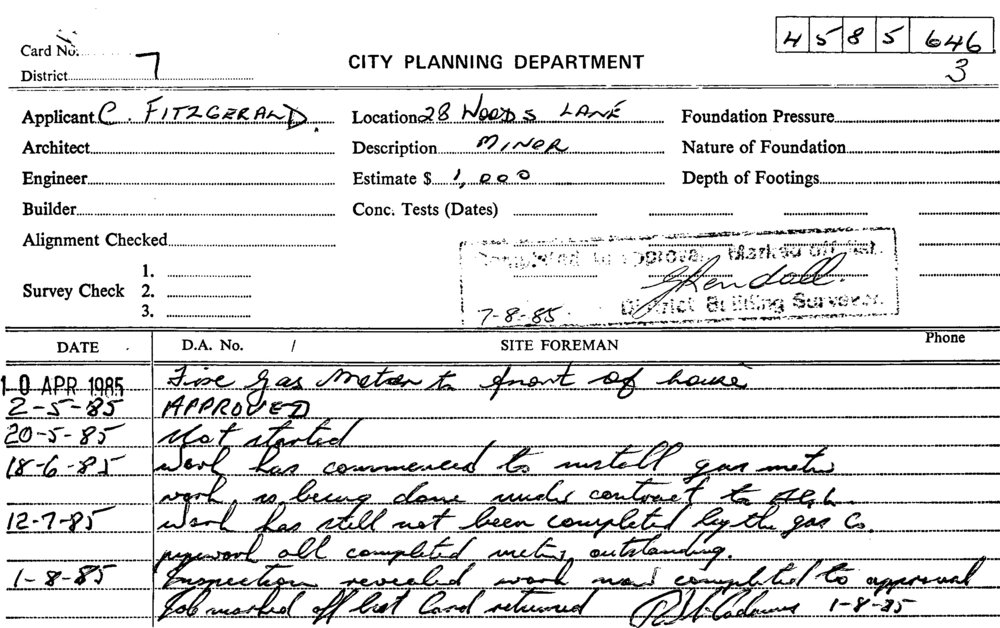 4585 646
Card No.
3
District 7
CITY PLANNING DEPARTMENT
Applicant C. FITZGERALD. Location 28 WOODS LANE Foundation Pressure
Architect Description MINOR Nature of Foundation
Engineer Estimate $ 1,000 Depth of Footings
Builder Conc. Tests (Dates)
Alignment Checked
Completed to approval Marked off list.
Survey Check 1. 2. 3.
7-8-85 District Building Surveyor.
DATE D.A. No. / SITE FOREMAN Phone
10 APR 1985 Fixe Gas Meter to front of house
2-5-85 APPROVED
20-5-85 Not started
18-6-85 Work has commenced to install gas meter
work, is being done under contract to AGL.
12-7-85 Work has still not been completed by the gas Co.
pipework all completed meter, outstanding.
1-8-85 Inspection revealed work now completed to approval
Job marked off list Card returned 1-8-85